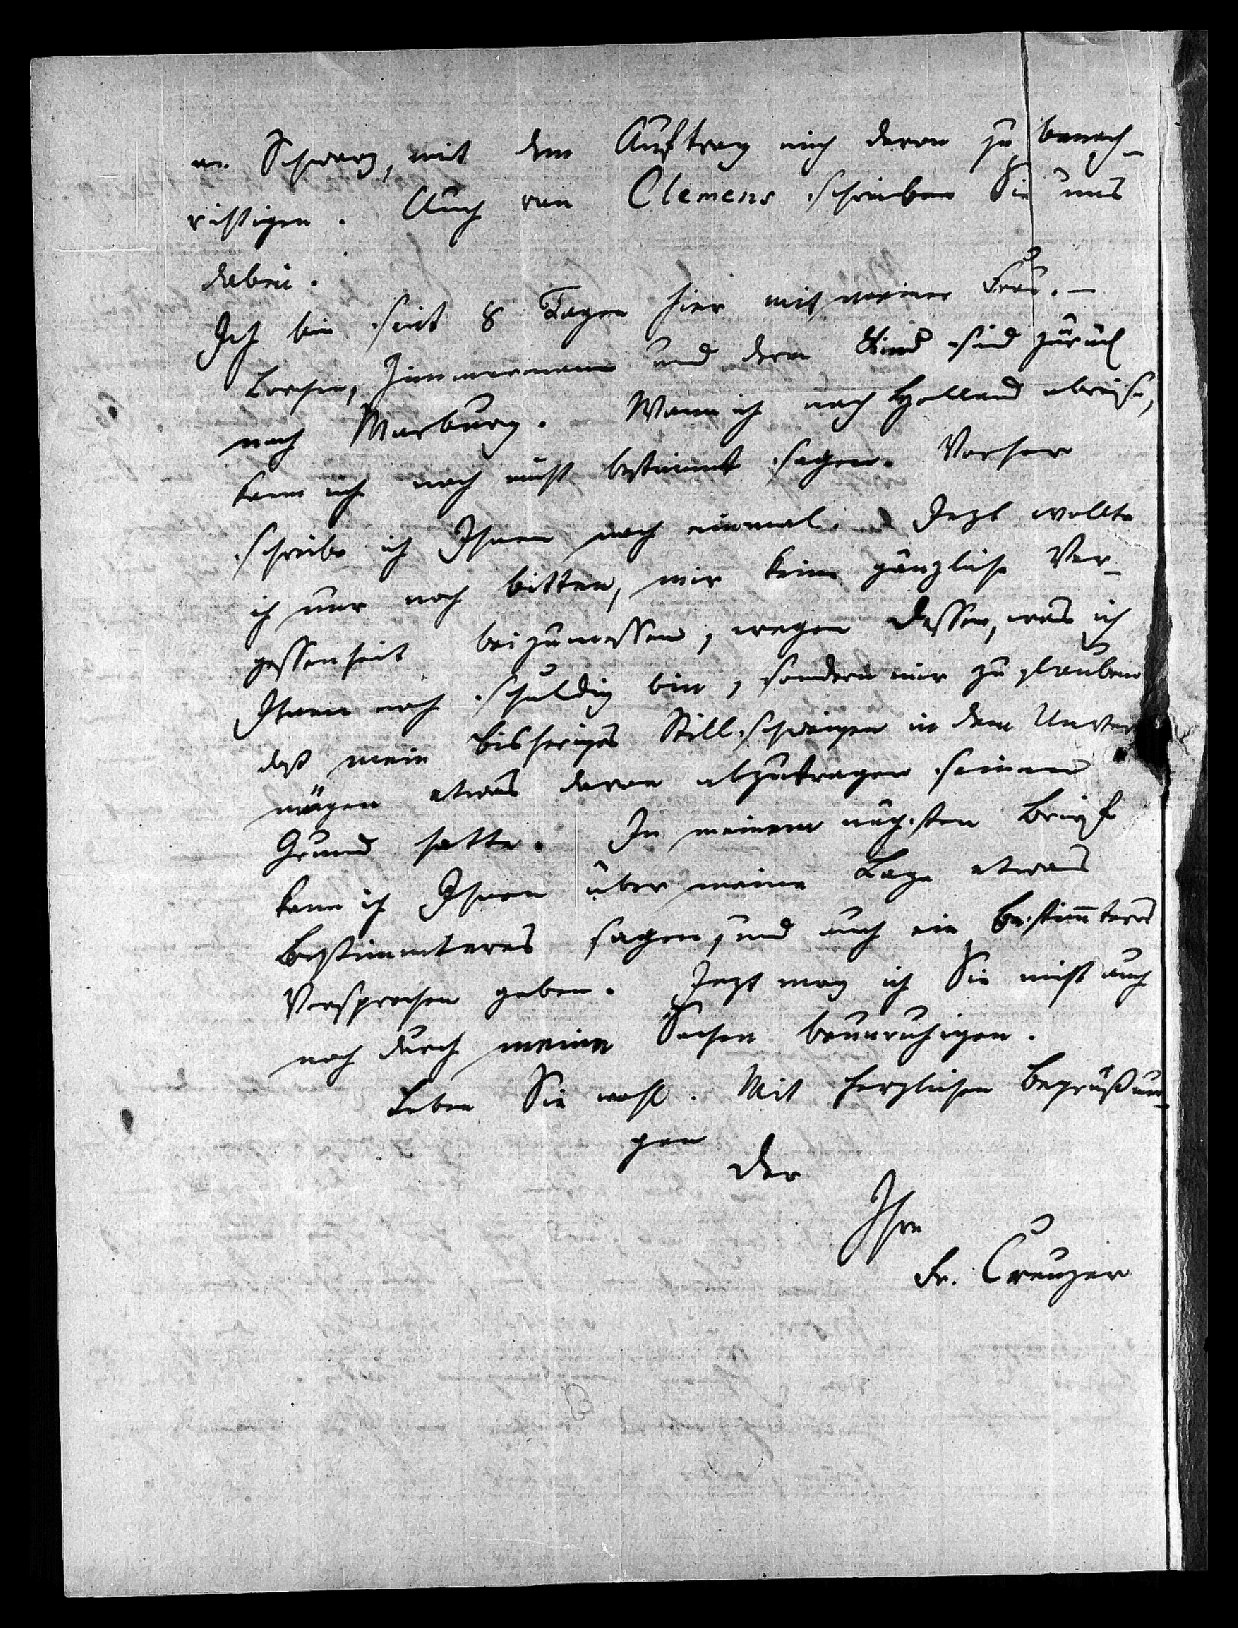 an Schwarz, mit dem Auftrag mich davon zu benach-
richtigen. Auch von Clemens schreiben Sie uns
dabei.
Ich bin seit 8 Tagen hier mit meiner Frau. —
Lorchen, Zimmermann und deren Kind sind zurück
nach Marburg. Wann ich nach Holland abreise,
kann ich noch nicht bestimmt sagen. Vorher
schreibe ich Ihnen noch einmal. Jezt wollte
ich nur noch bitten, mir keine gänzliche Ver-
gessenheit beizumessen, wegen dessen, was ich
Ihnen noch schuldig bin, sondern mir zu glauben
daß mein bisheriges Stillschweigen in dem Unver
mögen etwas davon abzutragen seinen
Grund hatte. In meinem nächsten Brief
kann ich Ihnen über meine Lage etwas
Bestimmteres sagen, und auch ein bestimmteres
Versprechen geben. Jezt mag ich Sie nicht auch
noch durch meine Sachen beunruhigen.
Leben Sie wohl. Mit herzlichen Begrüßun-
gen
der
Ihre
Fr. Creuzer